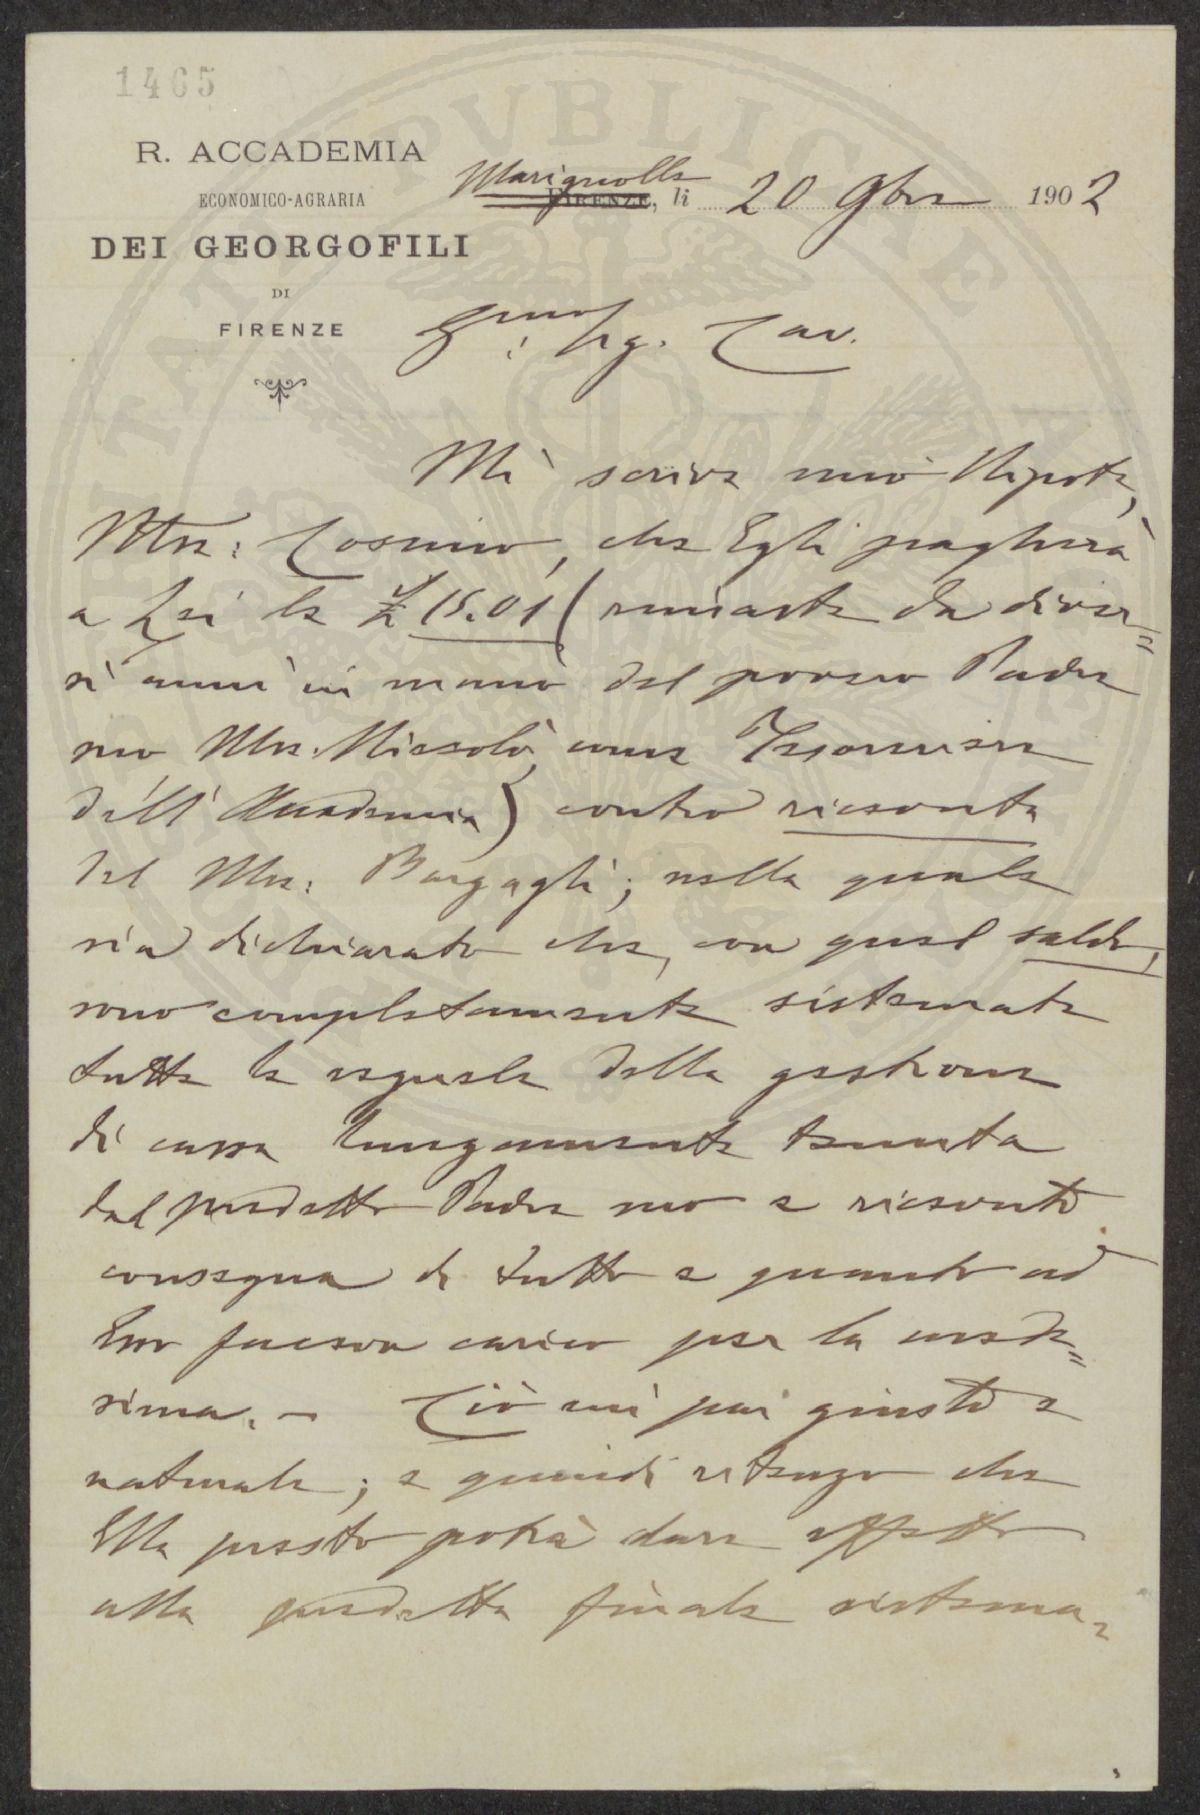 1465
R. ACCADEMIA
ECONOMICO-AGRARIA
DEI GEORGOFILI
DI
FIRENZE
Marignolle
FIRENZE, li 20 9bre 1902
PVBLICAE
Sig. Cav.
Mi scrive mio Nipote,
Mse: Cosimo, che Egli pagherà
a Lei le £ 15.01 (rimaste da diver=
si anni in mano del povero Padre
suo Mse. Niccolò, come Tesoriere
dell' Accademia) contro ricevuta
del Mse: Bargagli; nella quale
sia dichiarato che, con quel saldo,
sono completamente sistemate
tutte le regole della gestione
di cassa lungamente tenuta
dal predetto Padre suo e ricevuto
consegna di tutto e quanto ad
Esso faceva carico per la mede=
sima. – Ciò mi par giusto e
naturale; e quindi ritengo che
Ella presto potrà dare effetto
alla predetta finale sistema=